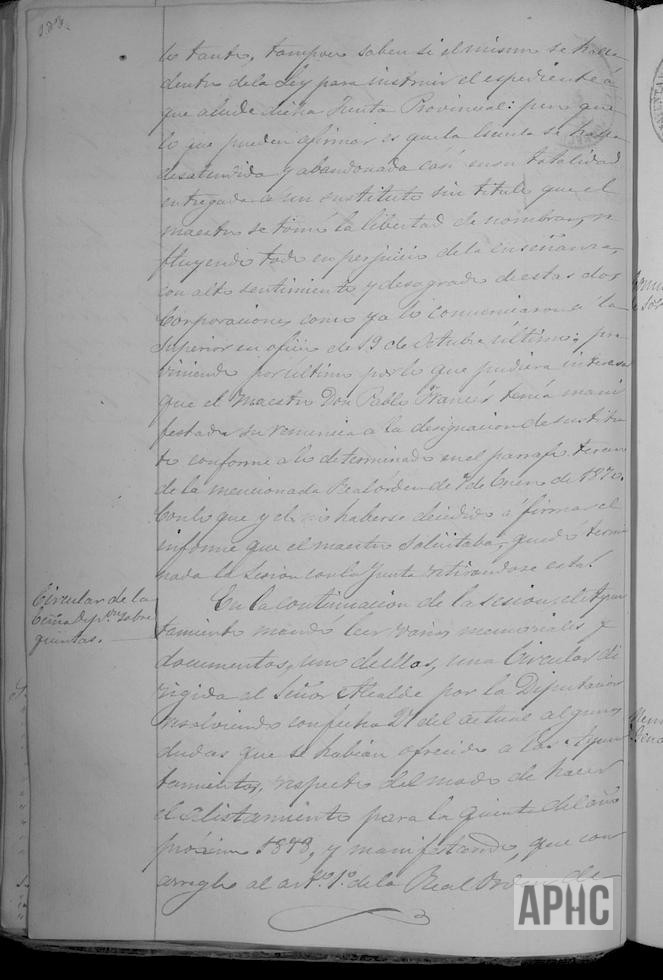 lo tanto, tampoco saben si el mismo se halla
dentro de la Ley para instruir el espediente á
que alude dicha Junta Provincial: pero que
lo que pueden afirmar es que la Escuela se halla
desatendida y abandonada casi en su totalidad
entregada á un sustituto sin titulo que el
maestro se tomó la libertad de nombrar, re
fluyendo todo en perjuicio de la enseñanza,
con alto sentimiento y desagrado de estas dos
Corporaciones como ya lo comunicaron á la
Superior en oficio de 19 de Octubre último; pre
viniendo por último por lo que pudiera interesar
que el Maestro Don Pablo Francés tenía mani
festada su renuncia a la designacion de sustitu
to conforme a lo determinado en el parrafo tercero
de la mencionada Real órden de 7 de Enero de 1870.
Con lo que y el no haberse decidido á firmar el
informe que el maestro solicitaba, quedó termi
nada la Sesion con la Junta retirandose esta.
Circular de la
Dip.on sobre
quintas.
En la continuacion de la sesion, el Ayun
tamiento mandó leer varios memoriales y
documentos, uno de ellos, una Circular di
rigida al Señor Alcalde por la Diputacion
resolviendo con fecha 27 del actual algunas
dudas que se habian ofrecido a los Ayun
tamientos, respecto del modo de hacer
el alistamiento para la quinta del año
próximo 1873, y manifestando, que con
arreglo al art.o 1.o de la Real Orden de
APHC